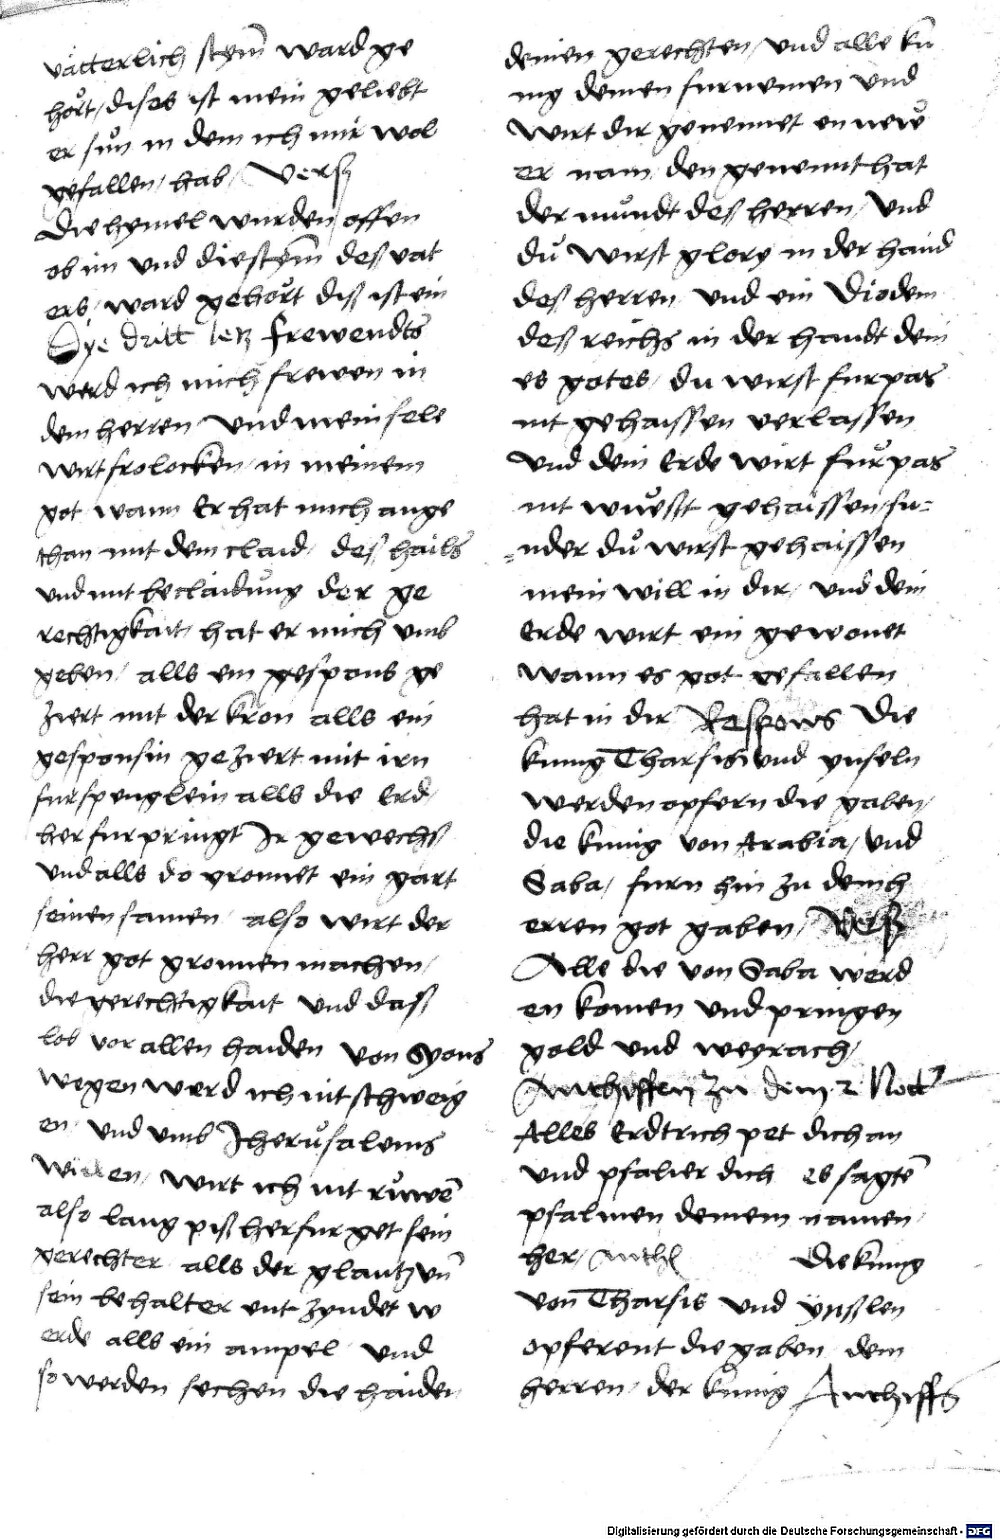 vätterlich stym̄ ward ge
hört / dises ist mein geliebt
er sůn in dem ich mir wol
gefallen / hab / Verß
Die hymel wurden offen
ob im und die stym̄ deß vat
ers / ward gehört diß ist ein
Dye dritt letz frewendts
werd ich mich frewen in
dem herren und mein sele
wirt frolocken / in meinem
got wann Er hat mich ange
than mit dem claid / deß hails
und mit beclaidung der ge
rechtigkait / hat er mich umb
geben / alls ein gespons ge
ziert mit der kron alls ein
gesponsin geziert mit irn
furspenglein alls die Erd /
her fur pringt Ir gewechß
und alls do gronnet ein gart
seinen samen / also wirt der
herr got gronnen machen /
die gerechtigkait und daß
lob vor allen haiden von Syons
wegen werd ich nit schweig
en / und umb Jherůsalems
willen / wirt ich nit růwē
also lang piß her fur get sein
gerechter alls der glantz vn̄
sein behalter ent zyndet w
erde alls ein ampel / und
so werden sechen die haiden
deinen gerechten / und alle ku
nig deinen furnemen und
wirt dir genennet en newe
er nam / den genennt hat
der mundt deß herren / und
du wirst glory in der hand
deß herren / und ein Diodem
deß reichs in der handt dein
es gotes / du wirst furpas
nit gehaissen verlassen
und dein Erde wirt furpas
nit wuest gehaissen / su=
=nder du wirst gehaissen
mein will in dir / und dein
Erde wirt ein gewonet
wann es got gefallen
hat in dir Respons Die
kunig Tharsis und ynseln
werden opfern die gaben /
die kunig von Arabia / und
Saba / furn hin zu dem h
erren got gaben / Verß
Alle die von Saba werd
en komen und pringen
gold und weyrach /
Anthiffen zu dem 2 Nott
Alles Erdtrich pet dich an
und psalier dich es sagtē
psalmen deinem namen /
her / Anth Die kunig
von Tharsis und ynßlen
opferent die gaben dem
herren / der kunig Anthiffs
Digitalisierung gefördert durch die Deutsche Forschungsgemeinschaft - DFG